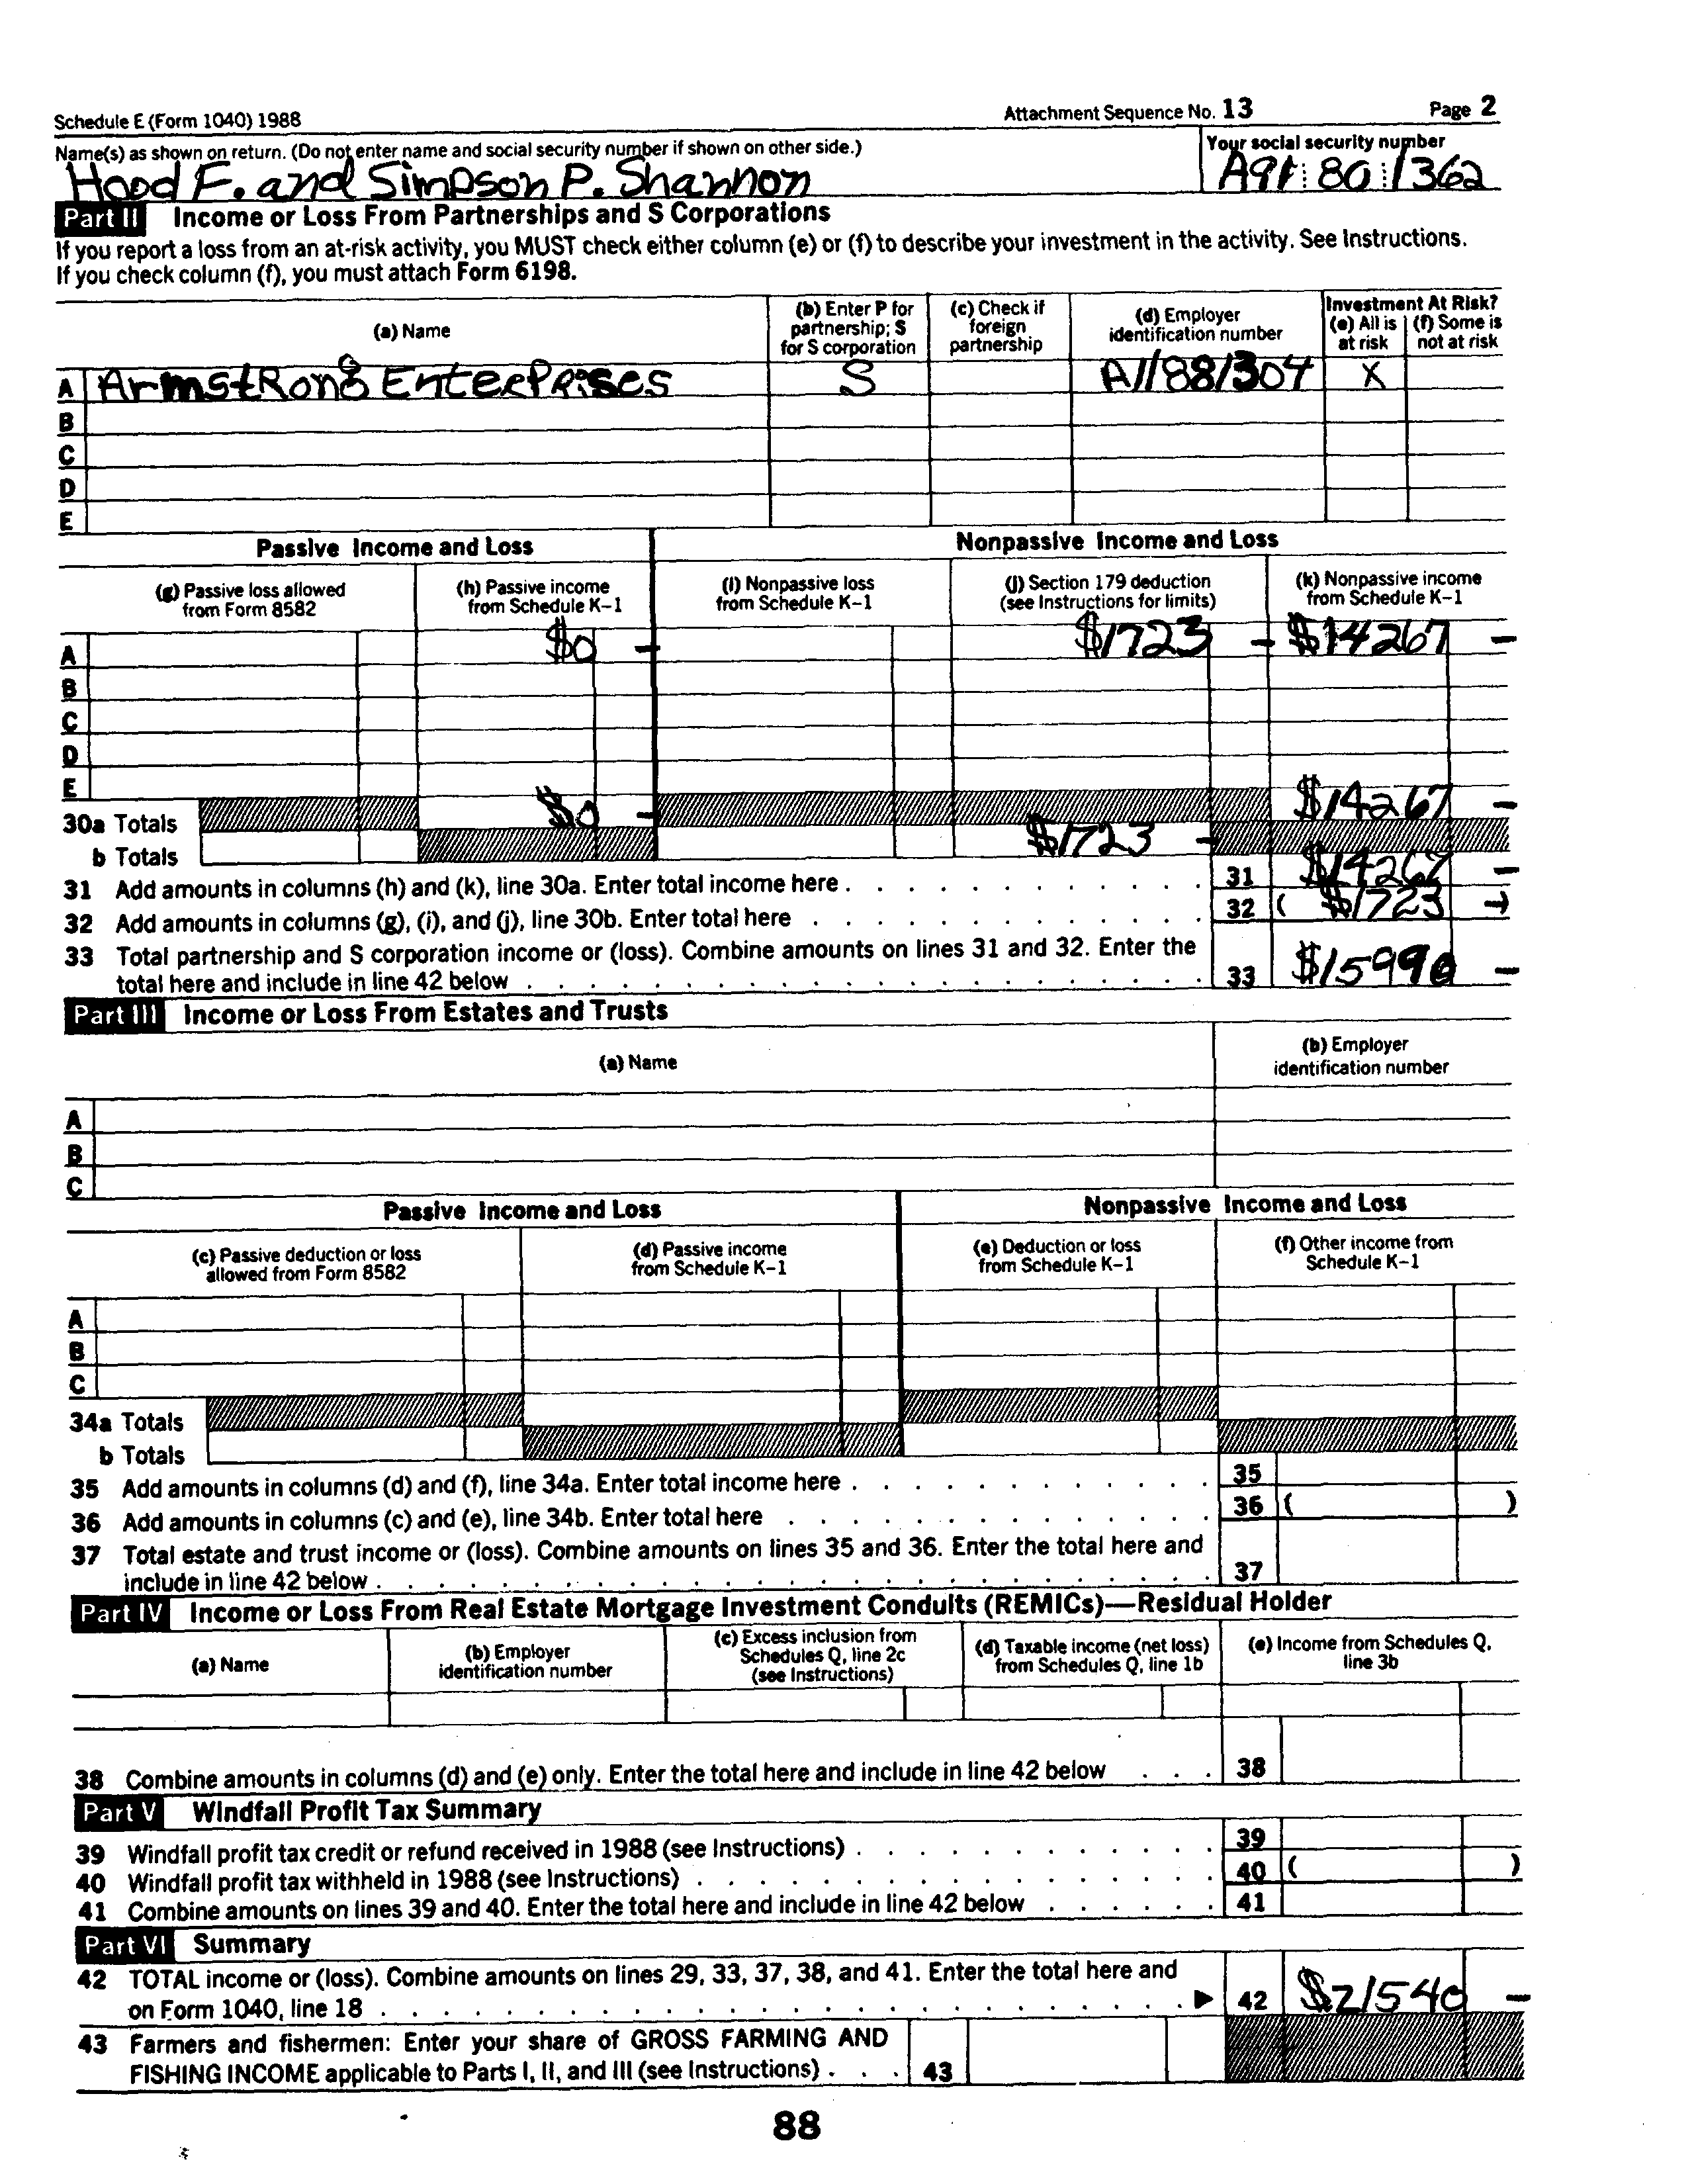 Schedule E (Form 1040) 1988 Attachment Sequence No. 13 Page 2
Name(s) as shown on return. (Do not enter name and social security number if shown on other side.) Your social security number
Hood F. and Simpson P. Shannon A91 80 1362
Part II Income or Loss From Partnerships and S Corporations
If you report a loss from an at-risk activity, you MUST check either column (e) or (f) to describe your investment in the activity. See Instructions.
If you check column (f), you must attach Form 6198.
(a) Name
(b) Enter P for partnership; S for S corporation
(c) Check if foreign partnership
(d) Employer identification number
Investment At Risk?
(e) All is at risk
(f) Some is not at risk
A Armstrong Enterprises S A11881304 X
B
C
D
E
Passive Income and Loss Nonpassive Income and Loss
(g) Passive loss allowed from Form 8582
(h) Passive income from Schedule K-1
(i) Nonpassive loss from Schedule K-1
(j) Section 179 deduction (see Instructions for limits)
(k) Nonpassive income from Schedule K-1
A $0 - $1723 - $14267 -
B
C
D
E
30a Totals $0 - $14267 -
b Totals $1723 -
31 Add amounts in columns (h) and (k), line 30a. Enter total income here 31 $14267 -
32 Add amounts in columns (g), (i), and (j), line 30b. Enter total here 32 ( $1723 - )
33 Total partnership and S corporation income or (loss). Combine amounts on lines 31 and 32. Enter the
total here and include in line 42 below 33 $15990 -
Part III Income or Loss From Estates and Trusts
(a) Name
(b) Employer identification number
A
B
C
Passive Income and Loss Nonpassive Income and Loss
(c) Passive deduction or loss allowed from Form 8582
(d) Passive income from Schedule K-1
(e) Deduction or loss from Schedule K-1
(f) Other income from Schedule K-1
A
B
C
34a Totals
b Totals
35 Add amounts in columns (d) and (f), line 34a. Enter total income here 35
36 Add amounts in columns (c) and (e), line 34b. Enter total here 36 ( )
37 Total estate and trust income or (loss). Combine amounts on lines 35 and 36. Enter the total here and
include in line 42 below 37
Part IV Income or Loss From Real Estate Mortgage Investment Conduits (REMICs)—Residual Holder
(a) Name
(b) Employer identification number
(c) Excess inclusion from Schedules Q, line 2c (see Instructions)
(d) Taxable income (net loss) from Schedules Q, line 1b
(e) Income from Schedules Q, line 3b
38 Combine amounts in columns (d) and (e) only. Enter the total here and include in line 42 below 38
Part V Windfall Profit Tax Summary
39 Windfall profit tax credit or refund received in 1988 (see Instructions) 39
40 Windfall profit tax withheld in 1988 (see Instructions) 40 ( )
41 Combine amounts on lines 39 and 40. Enter the total here and include in line 42 below 41
Part VI Summary
42 TOTAL income or (loss). Combine amounts on lines 29, 33, 37, 38, and 41. Enter the total here and
on Form 1040, line 18 ▶ 42 $21540 -
43 Farmers and fishermen: Enter your share of GROSS FARMING AND
FISHING INCOME applicable to Parts I, II, and III (see Instructions) 43
88